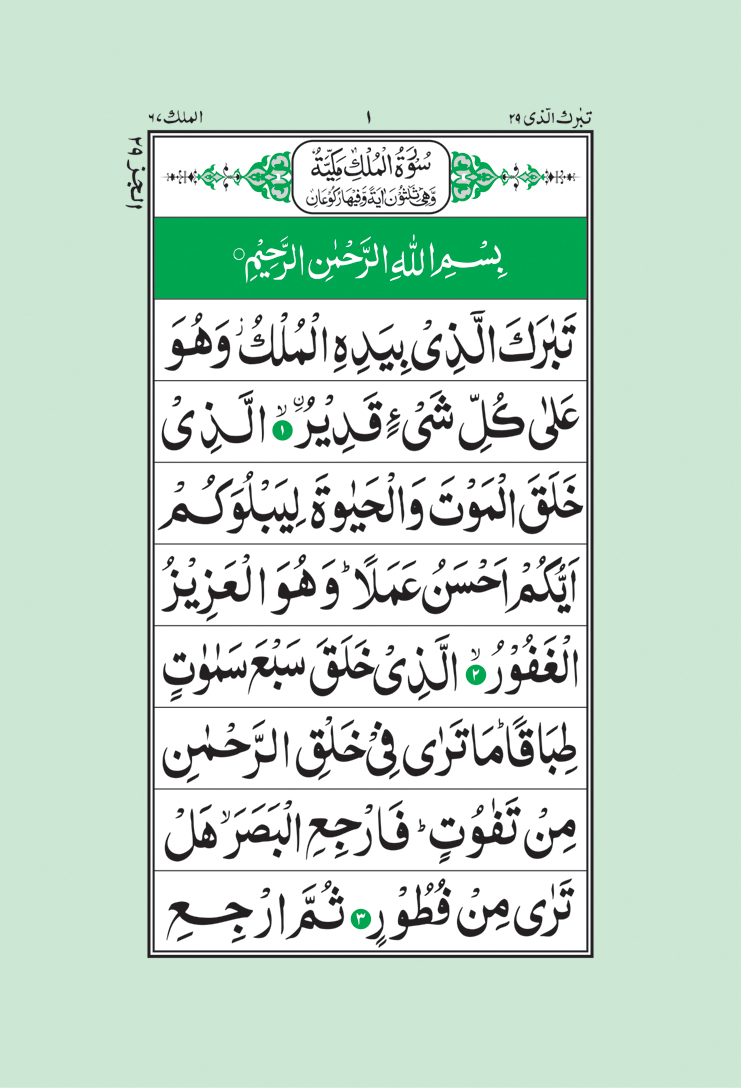 تبٰرك الّذی ٢٩
١
الملك ٦٧
الجز ٢٩
سُوْرَةُ الْمُلْكِ مَكِّيَّةٌ
وَّهِیَ ثَلٰثُوْنَ اٰيَةً وَّفِيْهَا رُكُوْعَانِ
بِسْمِ اللّٰهِ الرَّحْمٰنِ الرَّحِيْمِ○
تَبٰرَكَ الَّذِیْ بِيَدِهِ الْمُلْكُ ؗ وَهُوَ
عَلٰی كُلِّ شَیْءٍ قَدِيْرُ ۨ ۙ ١ الَّذِیْ
خَلَقَ الْمَوْتَ وَالْحَيٰوةَ لِيَبْلُوَكُمْ
اَيُّكُمْ اَحْسَنُ عَمَلًا ؕ وَهُوَ الْعَزِيْزُ
الْغَفُوْرُ ۙ ٢ الَّذِیْ خَلَقَ سَبْعَ سَمٰوٰتٍ
طِبَاقًا ؕ مَا تَرٰی فِیْ خَلْقِ الرَّحْمٰنِ
مِنْ تَفٰوُتٍ ؕ فَارْجِعِ الْبَصَرَ ۙ هَلْ
تَرٰی مِنْ فُطُوْرٍ ٣ ثُمَّ ارْجِعِ